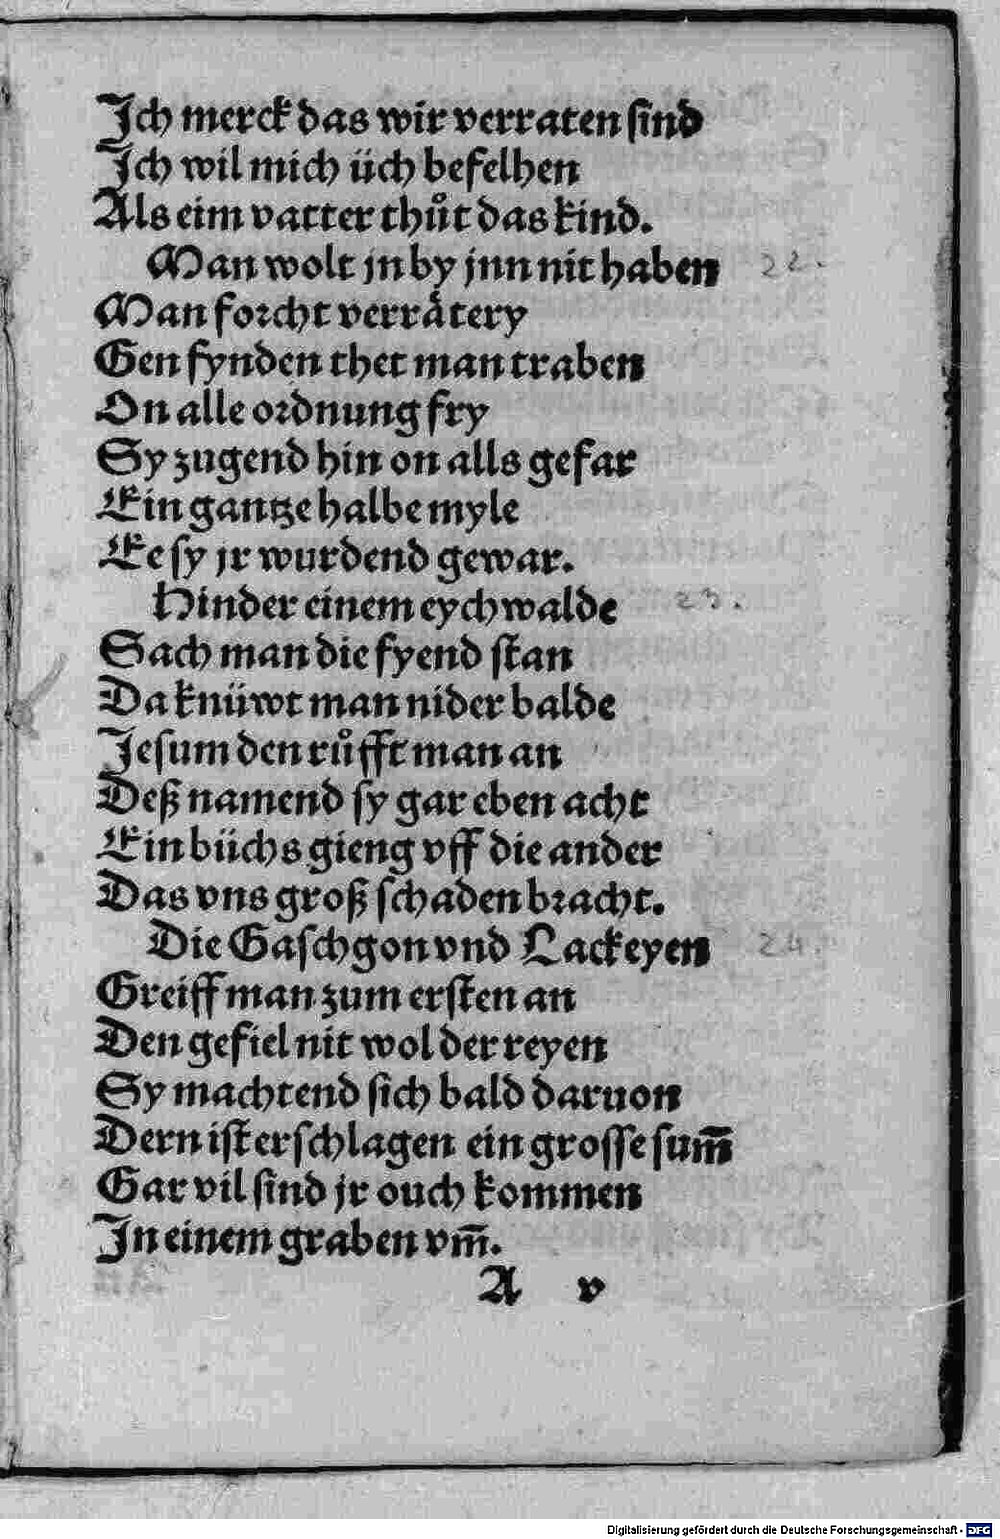 Ich merck das wir verraten sind
Ich wil mich üch befelhen
Als eim vatter thůt das kind.
Man wolt jn by jnn nit haben 22.
Man forcht verråtery
Gen fynden thet man traben
On alle ordnung fry
Sy zugend hin on alls gefar
Ein gantze halbe myle
Ee sy jr wurdend gewar.
Hinder einem eychwalde 23.
Sach man die fyend stan
Da knüwt man nider balde
Jesum den růfft man an
Deß namend sy gar eben acht
Ein büchs gieng vff die ander
Das vns groß schaden bracht.
Die Gaschgon vnd Lackeyen 24.
Greiff man zum ersten an
Den gefiel nit wol der reyen
Sy machtend sich bald daruon
Dern ist erschlagen ein grosse sum̄
Gar vil sind jr ouch kommen
In einem graben vm̄.
A v
Digitalisierung gefördert durch die Deutsche Forschungsgemeinschaft - DFG